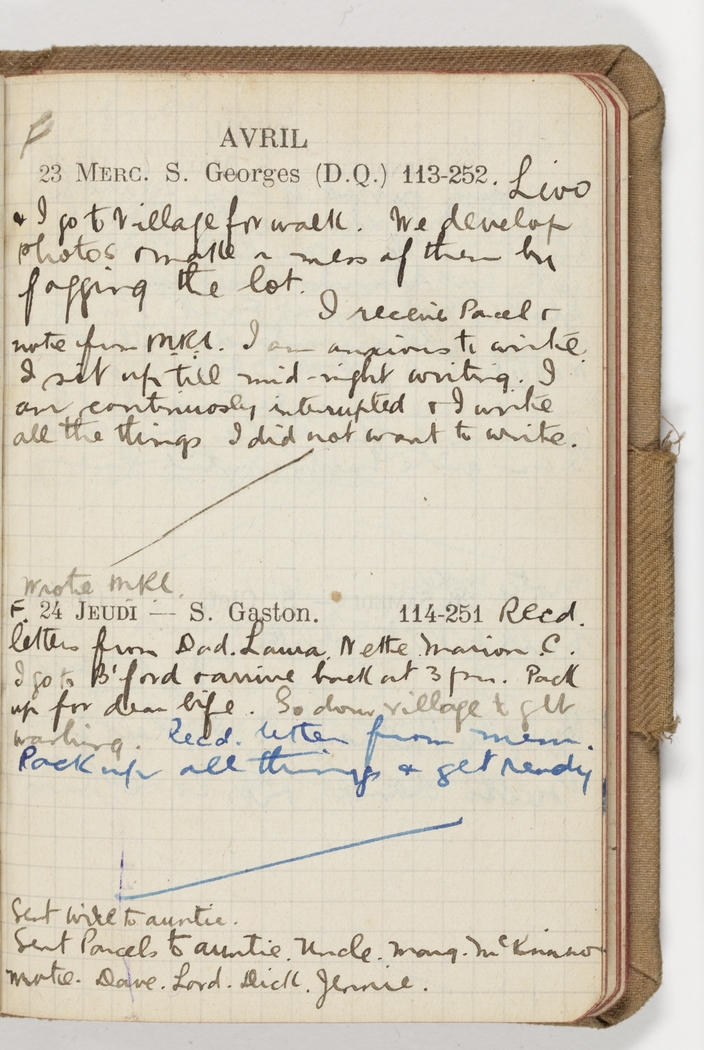 AVRIL
23 MERC. S. Georges (D.Q.) 113-252. Livo
& I go to village for walk. We develop
photos & make a mess of them by
fogging the lot.
I receive Parcel &
note from MKL. I am anxious to write.
I sit up till mid-night writing. I
am continuosly interupted & I write
all the things I did not want to write.
Wrote MKL.
F. 24 JEUDI — S. Gaston. 114-251 Recd.
letters from Dad. Laura, Nette. Marion. C.
I go to B'ford & arrive back at 3 pm. Pack
up for dear life. Go down village & get
washing. Recd. letter from mem.
Pack up all things & get ready
Sent wire to auntie.
Sent Parcels to auntie. Uncle. Marg.
Dave. Lord. Dick. Jennie.